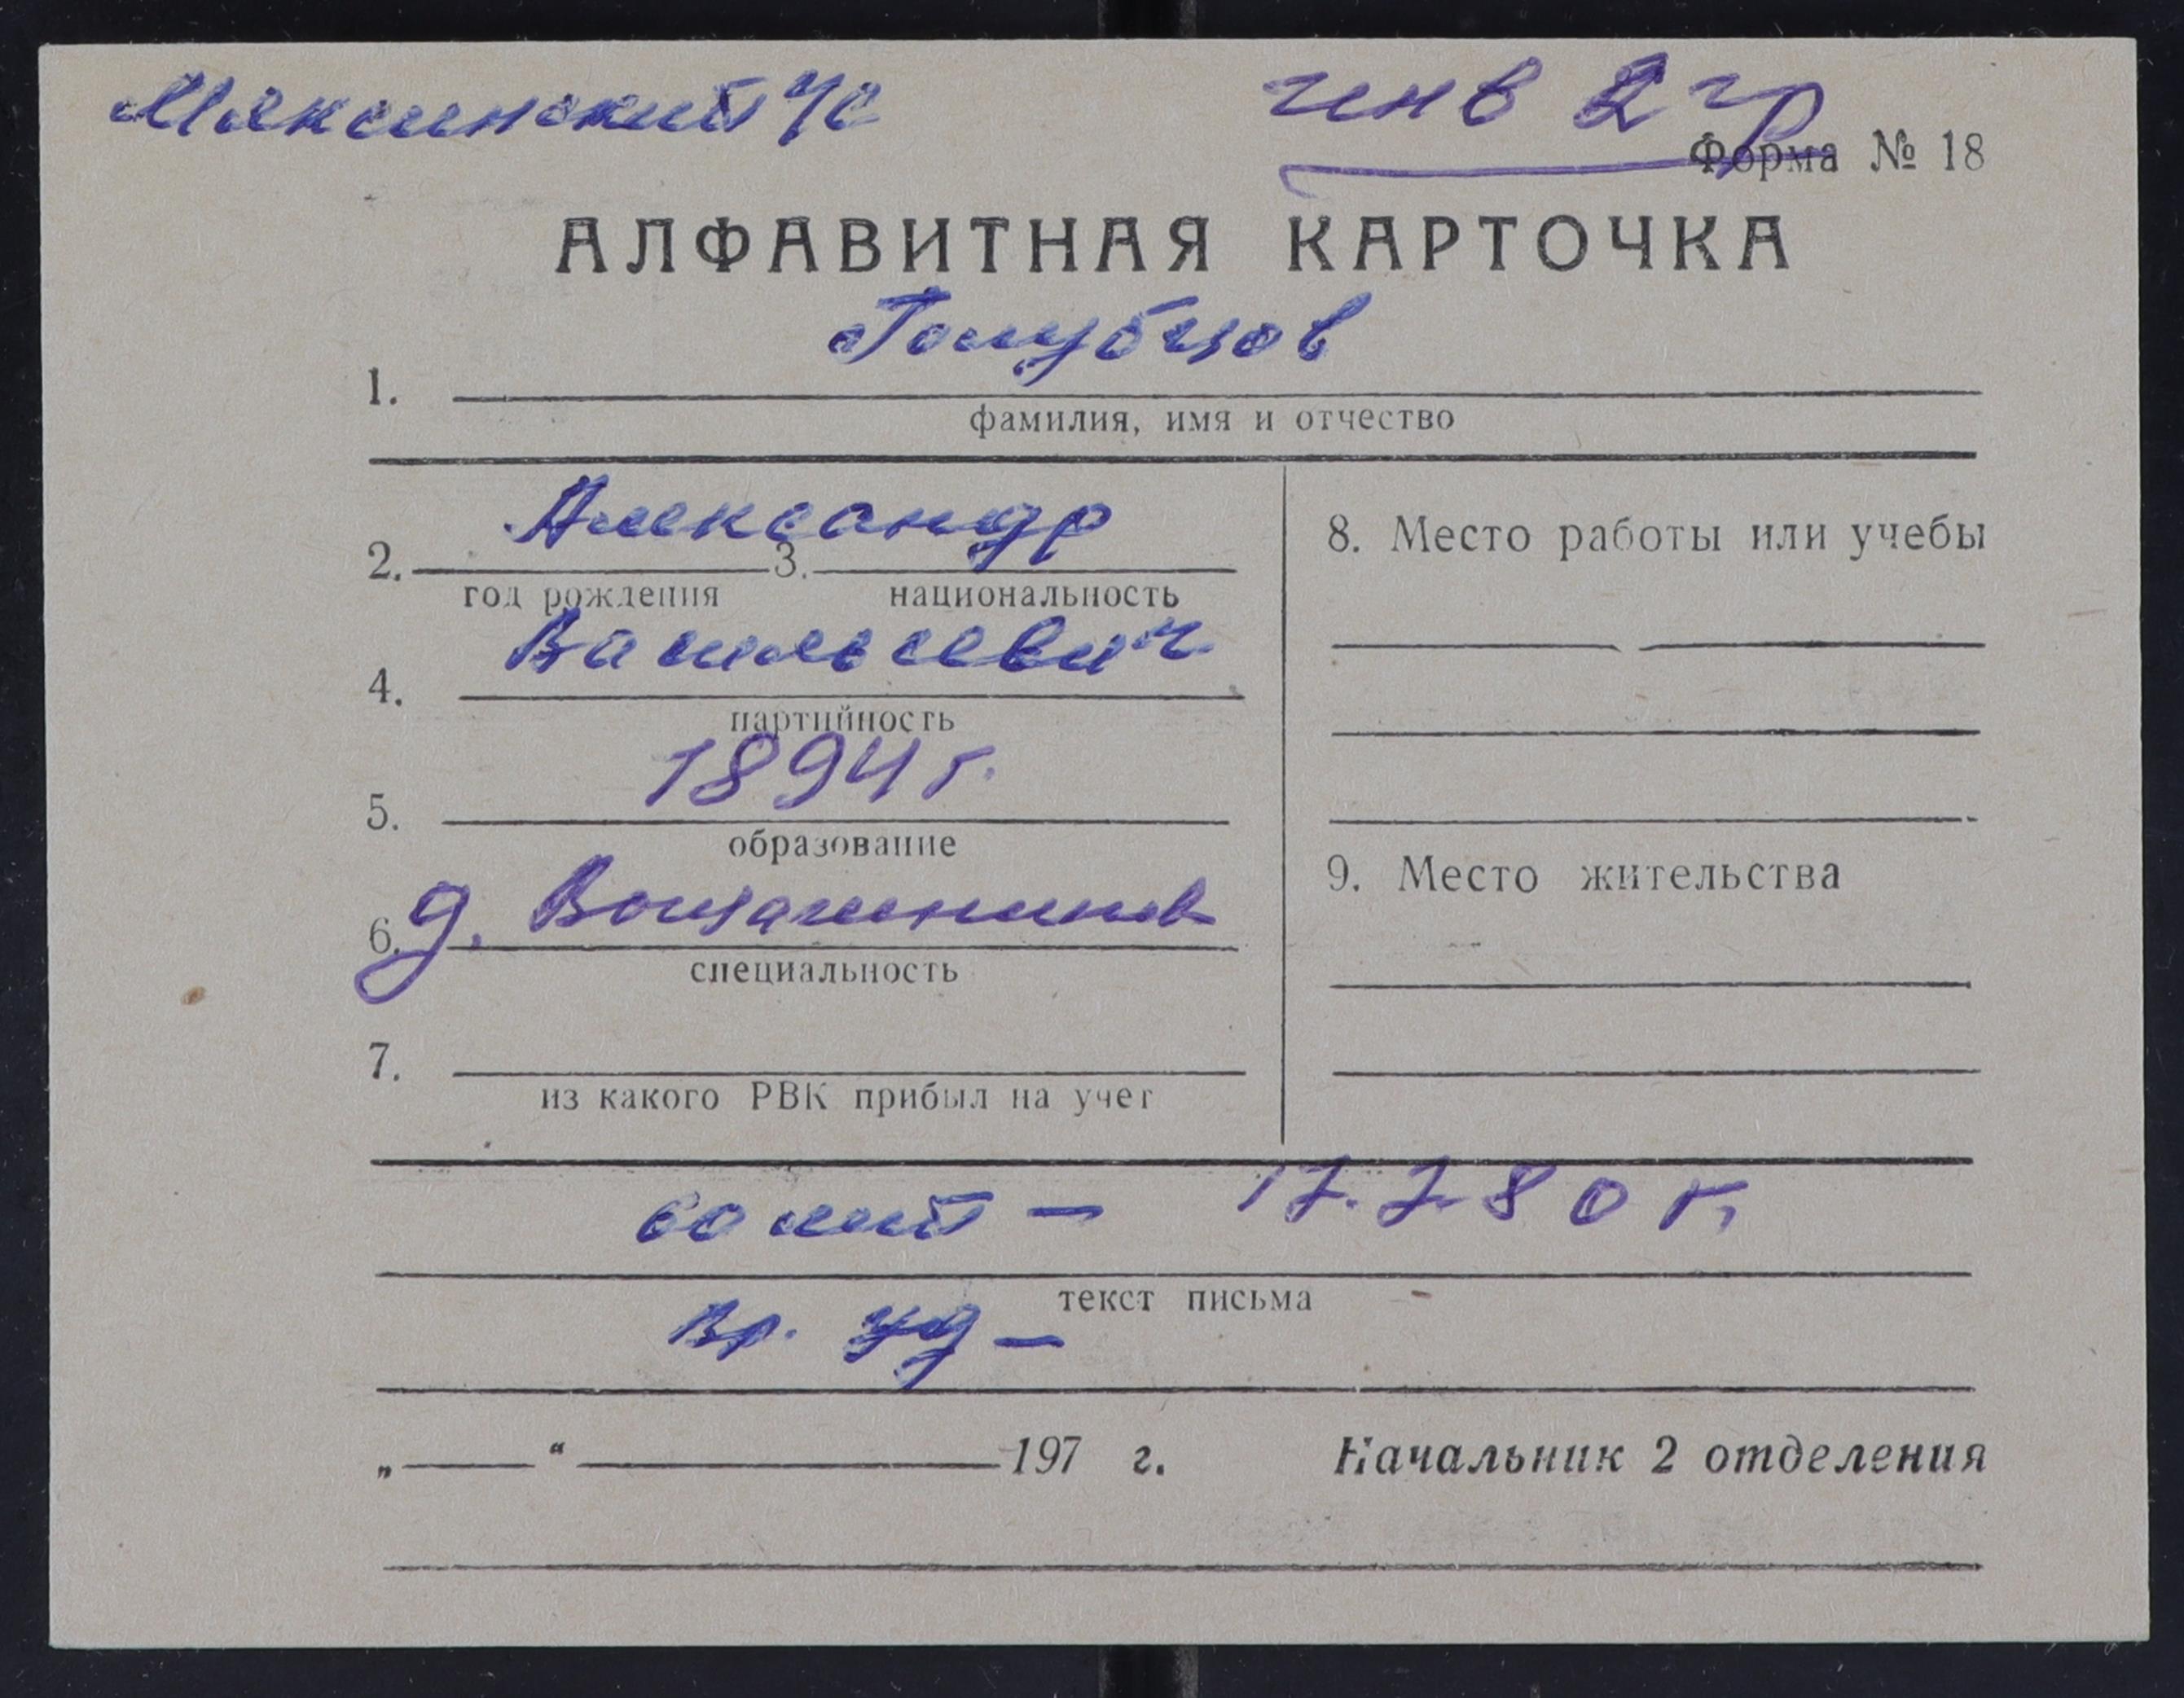 Мяксинский ч/с инв 2 гр
Форма № 18
АЛФАВИТНАЯ КАРТОЧКА
Голубцов
1.
фамилия, имя и отчество
Александр
2. 3.
год рождения национальность
Васильевич
4.
партийность
1894 г.
5.
образование
6. д. Вощажниково
специальность
7.
из какого РВК прибыл на учет
8. Место работы или учебы
9. Место жительства
60 лет – 17.7.80 г.
текст письма
Вр. уд –
„ “ 197 г. Начальник 2 отделения